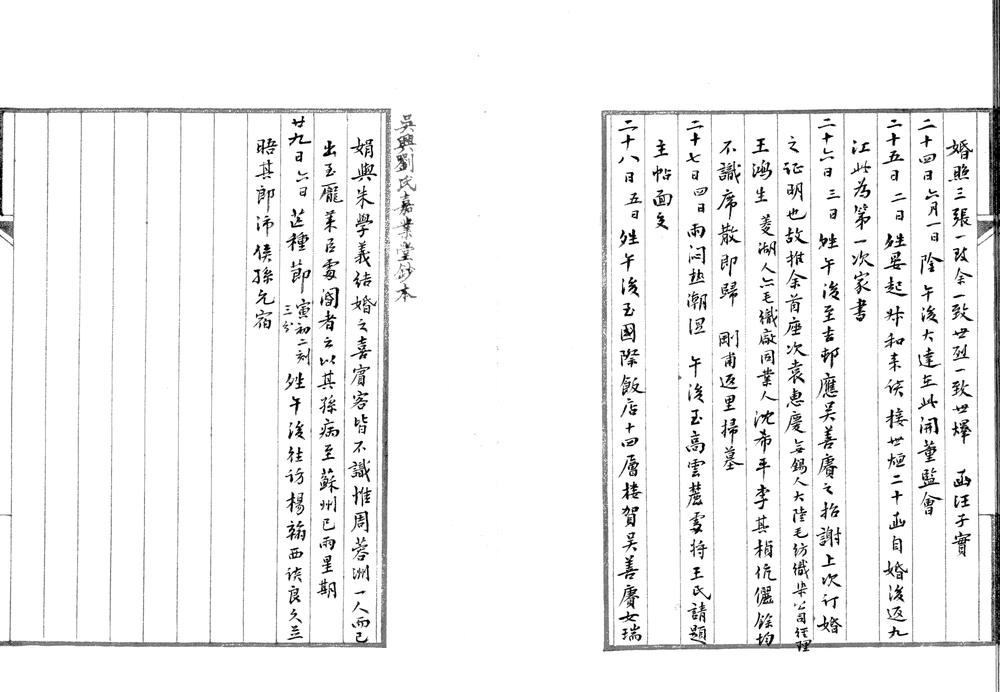 婚照三張一致余一致世烈一致世燡　函汪子實
二十四日六月一日陰　午後大達在此開董監會
二十五日二日　姓晏起　叔和来談接世烜二十函自婚後返九
江此為第一次家書
二十六日三日　午後至吉邨應吴善賡之招謝上次订婚
之证明也故推余首座次袁惠慶無錫人大陸毛纺織染公司经理
王鴻生菱湖人六毛織廠同業人沈希平李其楨伉儷餘均
不識席散即歸　剛甫返里掃墓
二十七日四日雨闷热潮湿　午後至高雲麓處将王氏請題
主帖面交
二十八日五日　午後至國際飯店十四層楼賀吴善賡女瑞
吳興劉氏嘉業堂鈔本
娟與朱學義结婚之喜賓客皆不識惟周蓉洲一人而已
出至龐莱臣處閽者云以其孫病至蘇州已兩星期
廿九日六日　芒種節寅初二刻三分　午後往访楊翰西谈良久並
晤其郎沛侯孫元宿